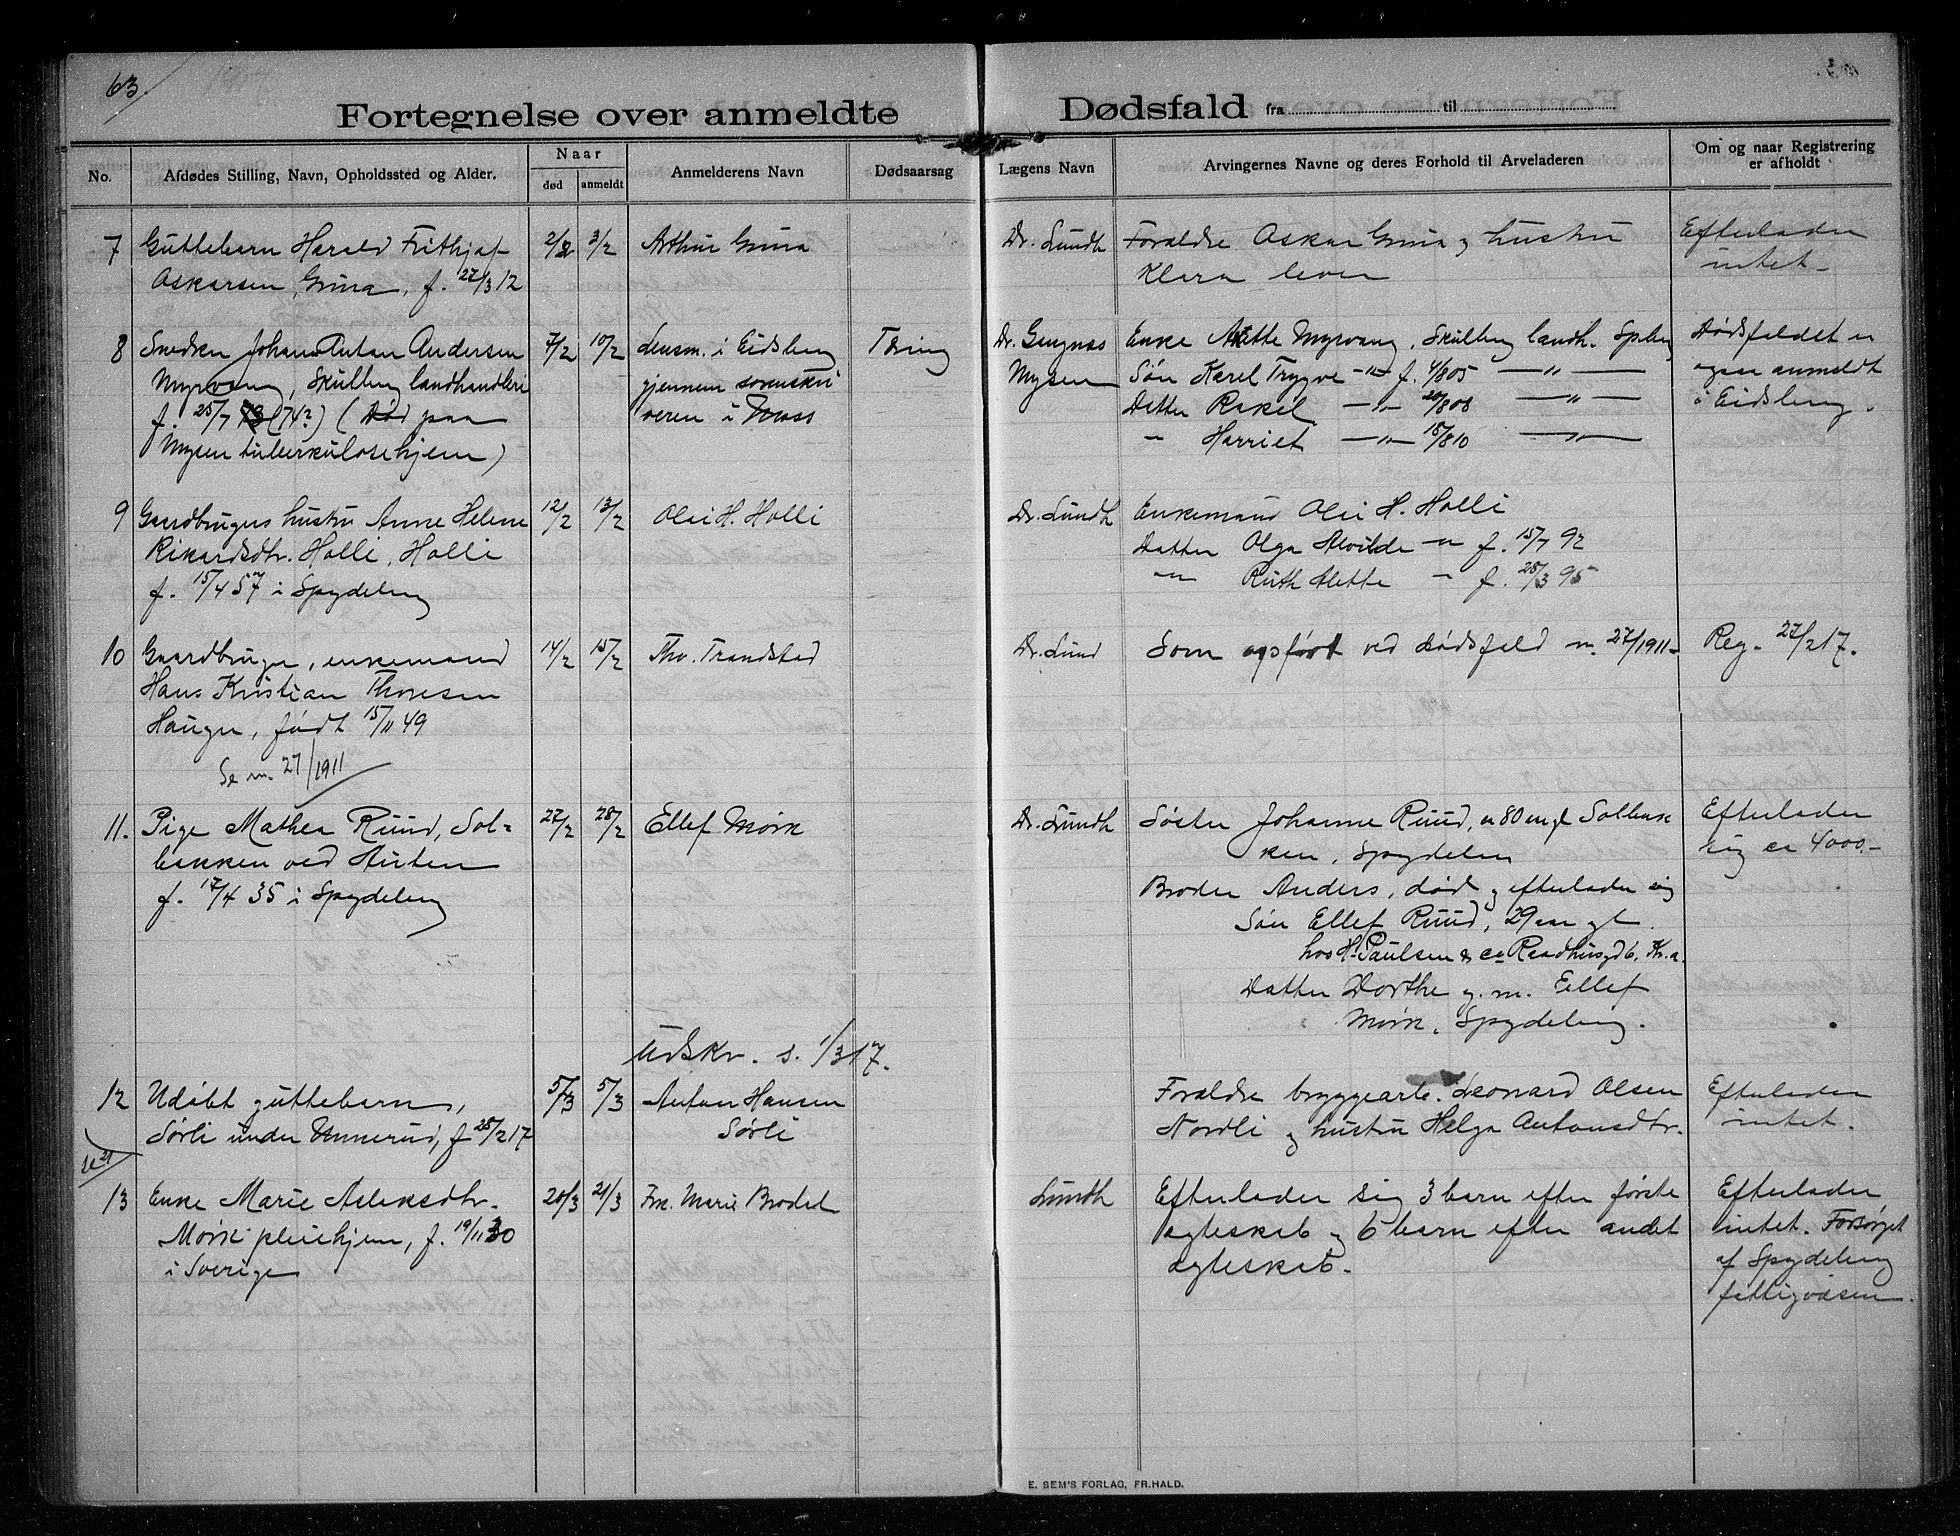 63
Fortegnelse over anmeldte Dødsfald fra til
No.
Afdødes Stilling, Navn, Opholdssted og Alder.
Naar
død
anmeldt
Anmelderens Navn
Dødsaarsag
Lægens Navn
Arvingernes Navne og deres Forhold til Arveladeren
Om og naar Registrering
er afholdt
7
Guttebarn Harald Frithjof
Oskarsen, f. 27/3 12
2/2
3/2
Arthur
Dr. Lundh
Forældre Oskar og hustru
Klara lever
Efterlader
intet -
8
Snedker Johan Anton Andersen
Myrvang, Skulberg landhandleri
f. 25/7 73 (74?) (Død paa
Mysen tuberkulosehjem)
7/2
10/2
Lensm. i Eidsberg
gjennem sorenskri
veren i Moss
Tæring
Dr.
Mysen
Enke Myrvang, Skulberg landh. Spberg
Søn Karel Trygve -"- f. 4/8 05 -"-
Datter Rakel -"- 20/8 08 -"-
" Harriet -"- 15/8 10 -"-
Dødsfaldet er
ogsaa anmeldt
i Eidsberg.
9
Gaardbrugers hustru Anne Helene
Rikardsdtr. Holli, Holli
f. 15/4 57 i Spydeberg
12/2
13/2
Olai H. Holli
Dr. Lundh
Enkemand Olai H. Holli
Datter Olga Alvilde -"- f. 15/7 92
-"- Ruth Alette - f. 25/3 95
10
Gaardbruger, enkemand
Hans Kristian Thoresen
Haugen, født 15/11 49
Se nr. 27/1911
14/2
15/2
Thv. Trandstad
Dr. Lund
Som opført ved dødsfald nr. 27/1911 -
Reg. 27/2 17.
11.
Pige Mathea Ruud, Sol-
bakken ved
f. 17/4 35 i Spydeberg
27/2
28/2
Ellef Mørk
Dr. Lundh
Søster Johanne Ruud, 80 Solbak
ken, Spydeberg
Broder Anders, død og efterlader sig
Søn Ellef Ruud, 29 aar gl.
hos H. Paulsen & Co Raadhusgd 6. Kr.a.
Datter Dorthe g. m. Ellef
Mørk, Spydeberg.
Efterlader
sig ca 4000.-
Udskr. s. 1/3 17.
12
Udøbt guttebarn,
Sørli under Unnerud, f 25/2 17
5/3
5/3
Anton Hansen
Sørli
Forældre bryggearb. Leonard Olsen
Nordli og hustru Helga Antonsdtr.
Efterlader
intet.
13
Enke Marie Aslaksdtr.
Mørk pleiehjem, f. 19/11 30
i Sverige
20/3
21/3
Frk. Marie Brodet
Lundh
Efterlader sig 3 barn efter første
ægteskab og 6 barn efter andet
ægteskab.
Efterlader
intet. Forsørget
af Spydeberg
fattigvæsen.
E. SEM'S FORLAG, FR.HALD.